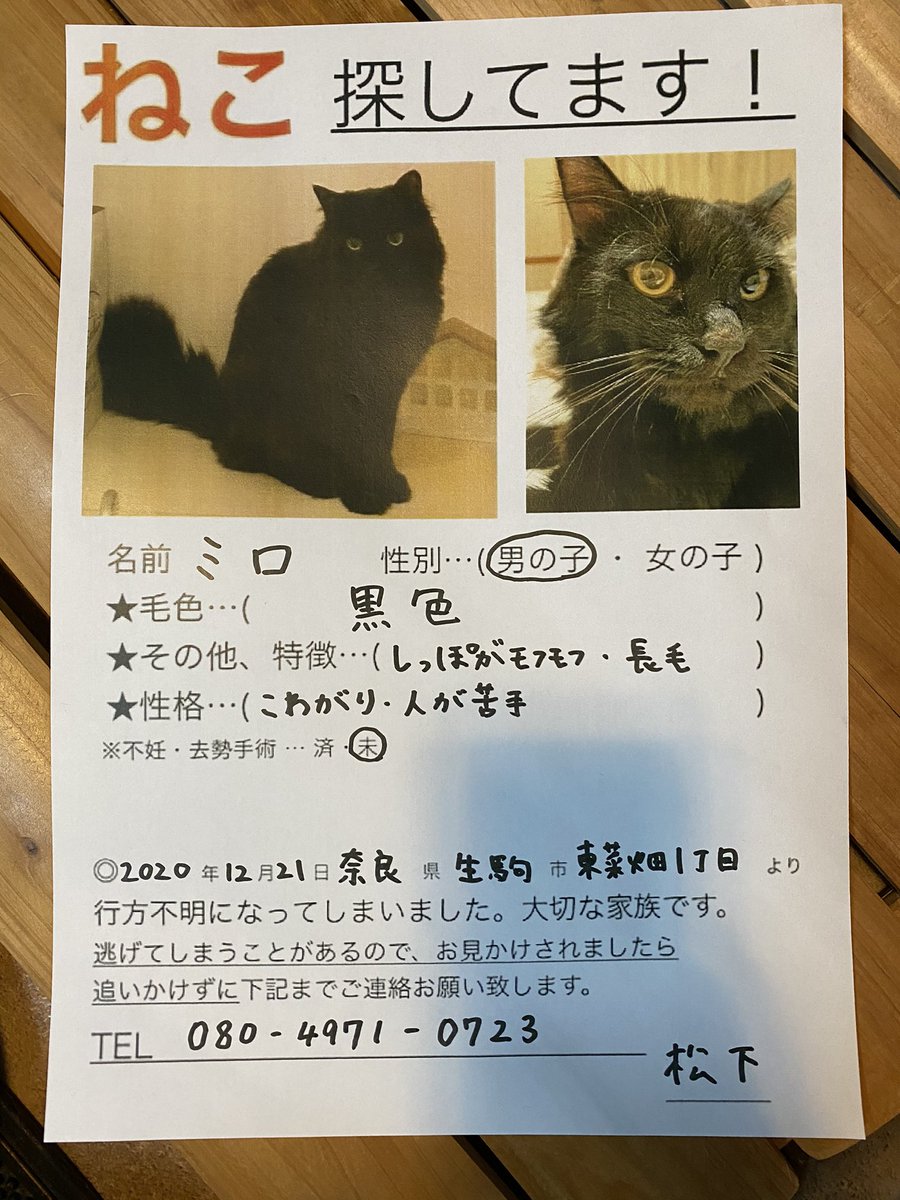 ねこ 探してます！
名前 ミロ 性別…(男の子 ・ 女の子)
★毛色…( 黒色 )
★その他、特徴…(しっぽがモフモフ・長毛 )
★性格…(こわがり・人が苦手 )
※不妊・去勢手術 … 済・未
◎2020年12月21日 奈良 県 生駒 市 東菜畑1丁目 より
行方不明になってしまいました。大切な家族です。
逃げてしまうことがあるので、お見かけされましたら
追いかけずに下記までご連絡お願い致します。
TEL 080-4971-0723
松下